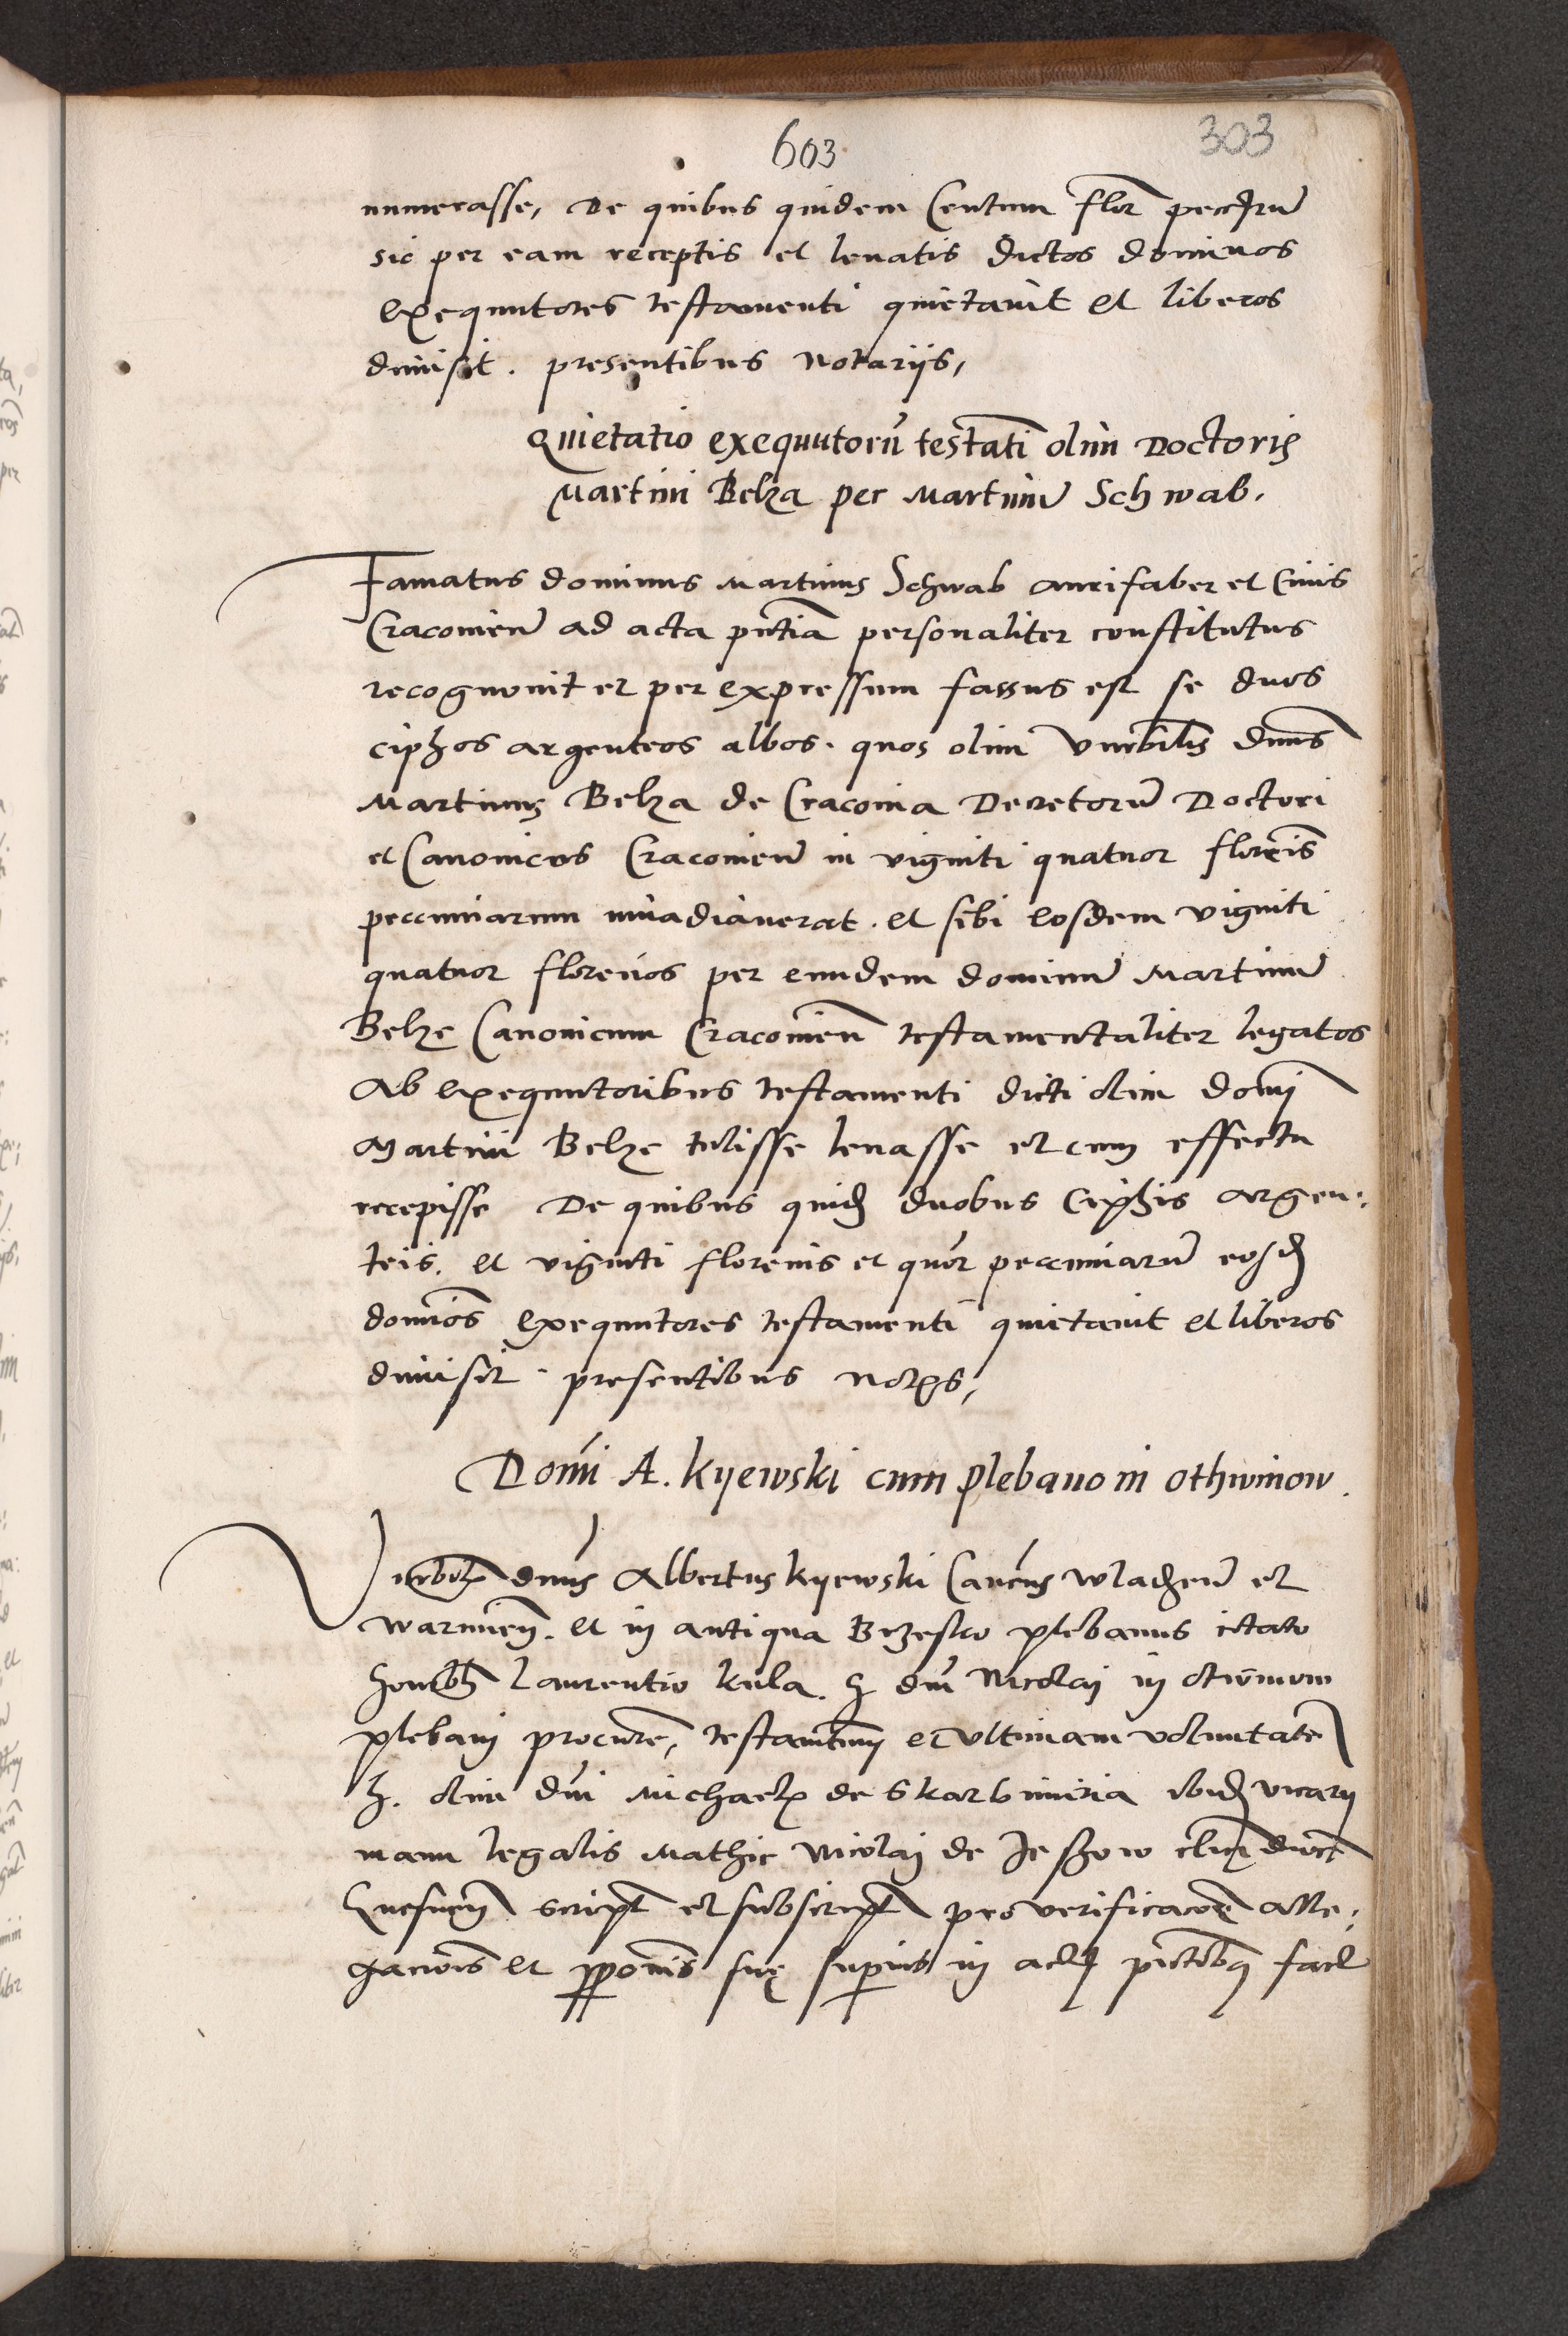 603
303
numerasse, De quibus quidem Centum flor̄ peccẏrū
sic per eam receptis et leuatis dictos dominos
exequutores testamenti quietauit et liberos
dimisit. presentibus Notariis,
Quietatio exequutorū testāti olim Doctoris
Martini Belza per Martinū Schwab.
Famatus dominus Martinus Schwab aurifaber et Ciuis
Cracouieñ ad acta pn̄tia personaliter constitutus
recognouit et per expressum fassus est se duos
ciphos argenteos albos. quos olim Vnerbilis dnūs
Martinus Belza de Cracouia Decretorū Doctori
et Canonicus Cracouieñ in viginti quatuor florenis
peccuniarum inuadiauerat. et sibi eosdem viginti
quatuor florenos per eundem dominū Martinū
Belze Canonicum Cracouieñ testamentaliter legatos
Ab exequutoribus testamenti dicti olim domī
Martini Belze tulisse leuasse et cum effectu
recepisse De quibus quid duobus Ciphis argen:
teis. et viginti florenis et quor peccuniarū eosd
domīos exequutores testamenti quietauit et liberos
dimisit. presentibus Notrs,
Domī A. Kyewski cum plebano in Othwinow.
Vnerbil dnūs Albertus Kyewski Cancūs Wladeñ et
Warmieñ. et in antiqua Brzesko plebanus citato
honorbli Laurentio Kula. h dnī Nicolai in Otwinow
plebani procure, testamentum et vltimam voluntatē
h. olim dnī Michael de Skarbimiria ibid vicarii
manu legalis Mathie Nicolai de Jeszow clici dioc
Gnesneñ script et subscript pro verificacōe alle:
gacīois et pponīs sue superius in actis pn̄tibus fact